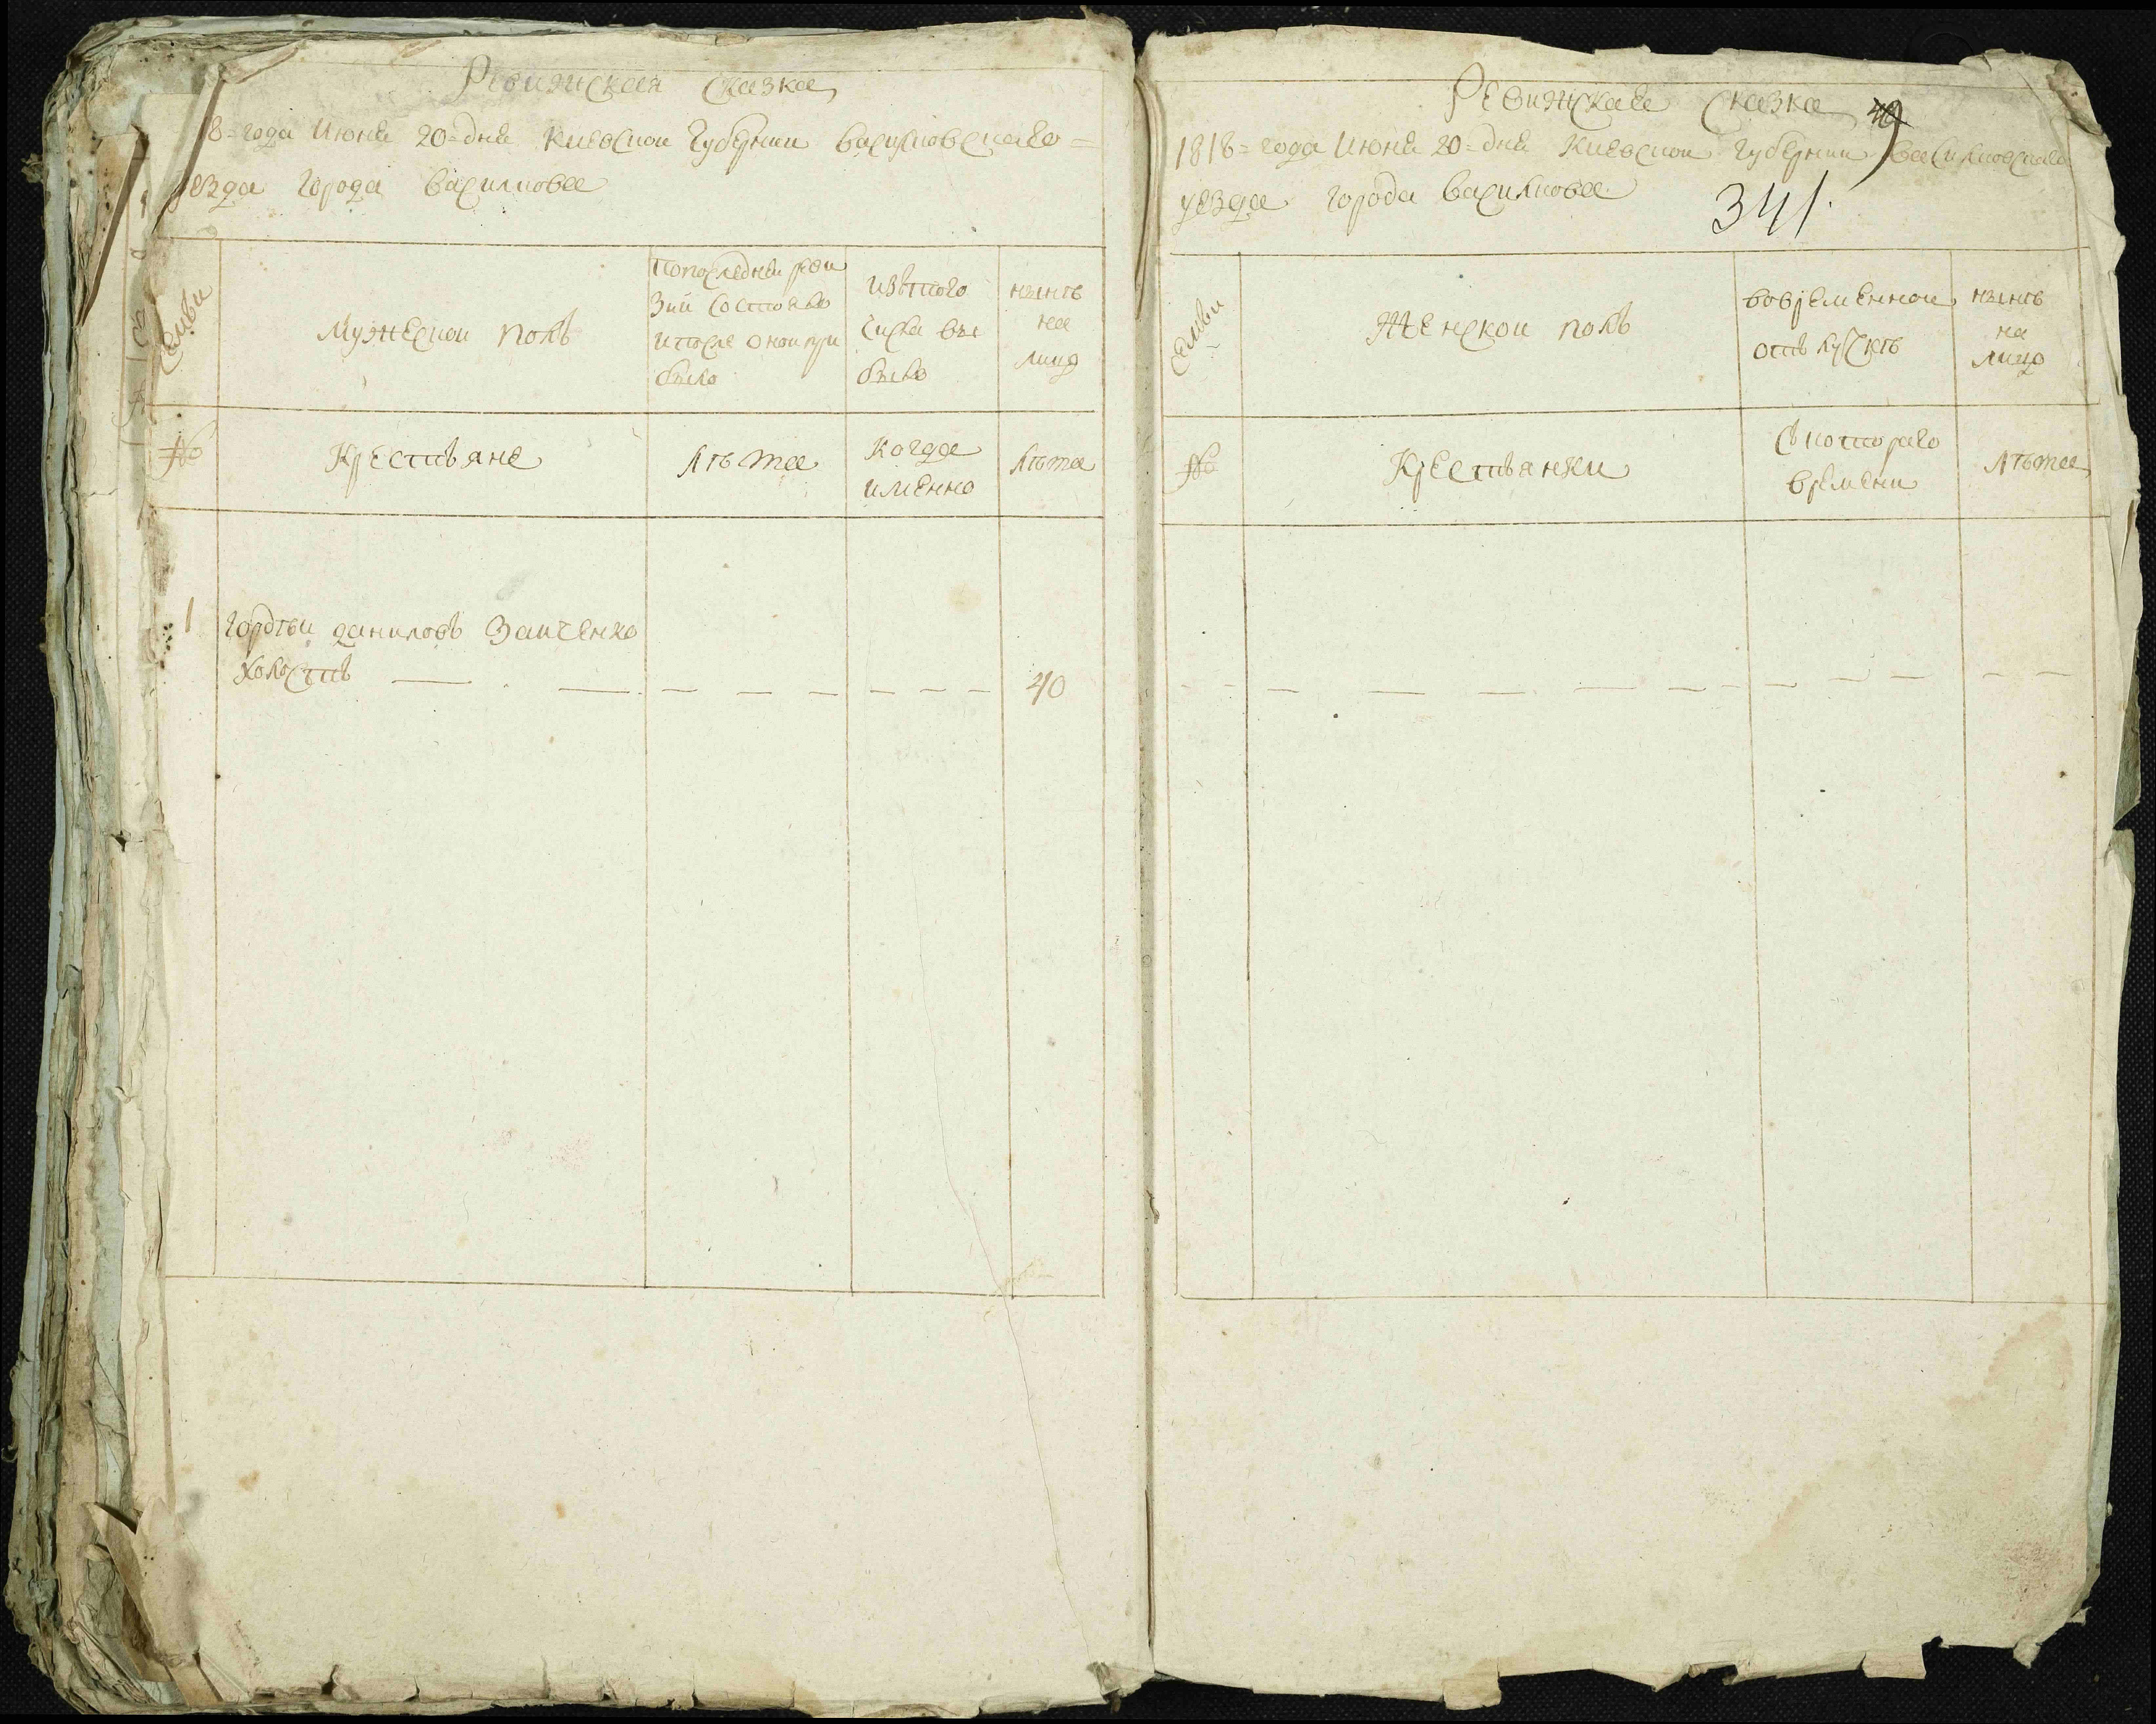 Ревижская сказка
8= года Июня 20= дня Киевской Губернии васильковскаго =
уезда города василкова
семьи
Мужеской полъ
По последней реви
зии состояло
и после оной при
было
Изътого
числа вы
было
нынѣ
на
лицо
№
Крестьяне
Лѣта
Когда
именно
Лѣта
1
Гордѣй даниловъ Заиченко
холостъ — — — — — — — — 40
Ревижская сказка
1818= года Июня 20= дня Киевской Губернии василковскаго
уезда города василкова
341.
семьи
Женской полъ
вовременной
отълучкѣ
нынѣ
на
лицо
№
Крестьянки
съ котораго
времени
Лѣта